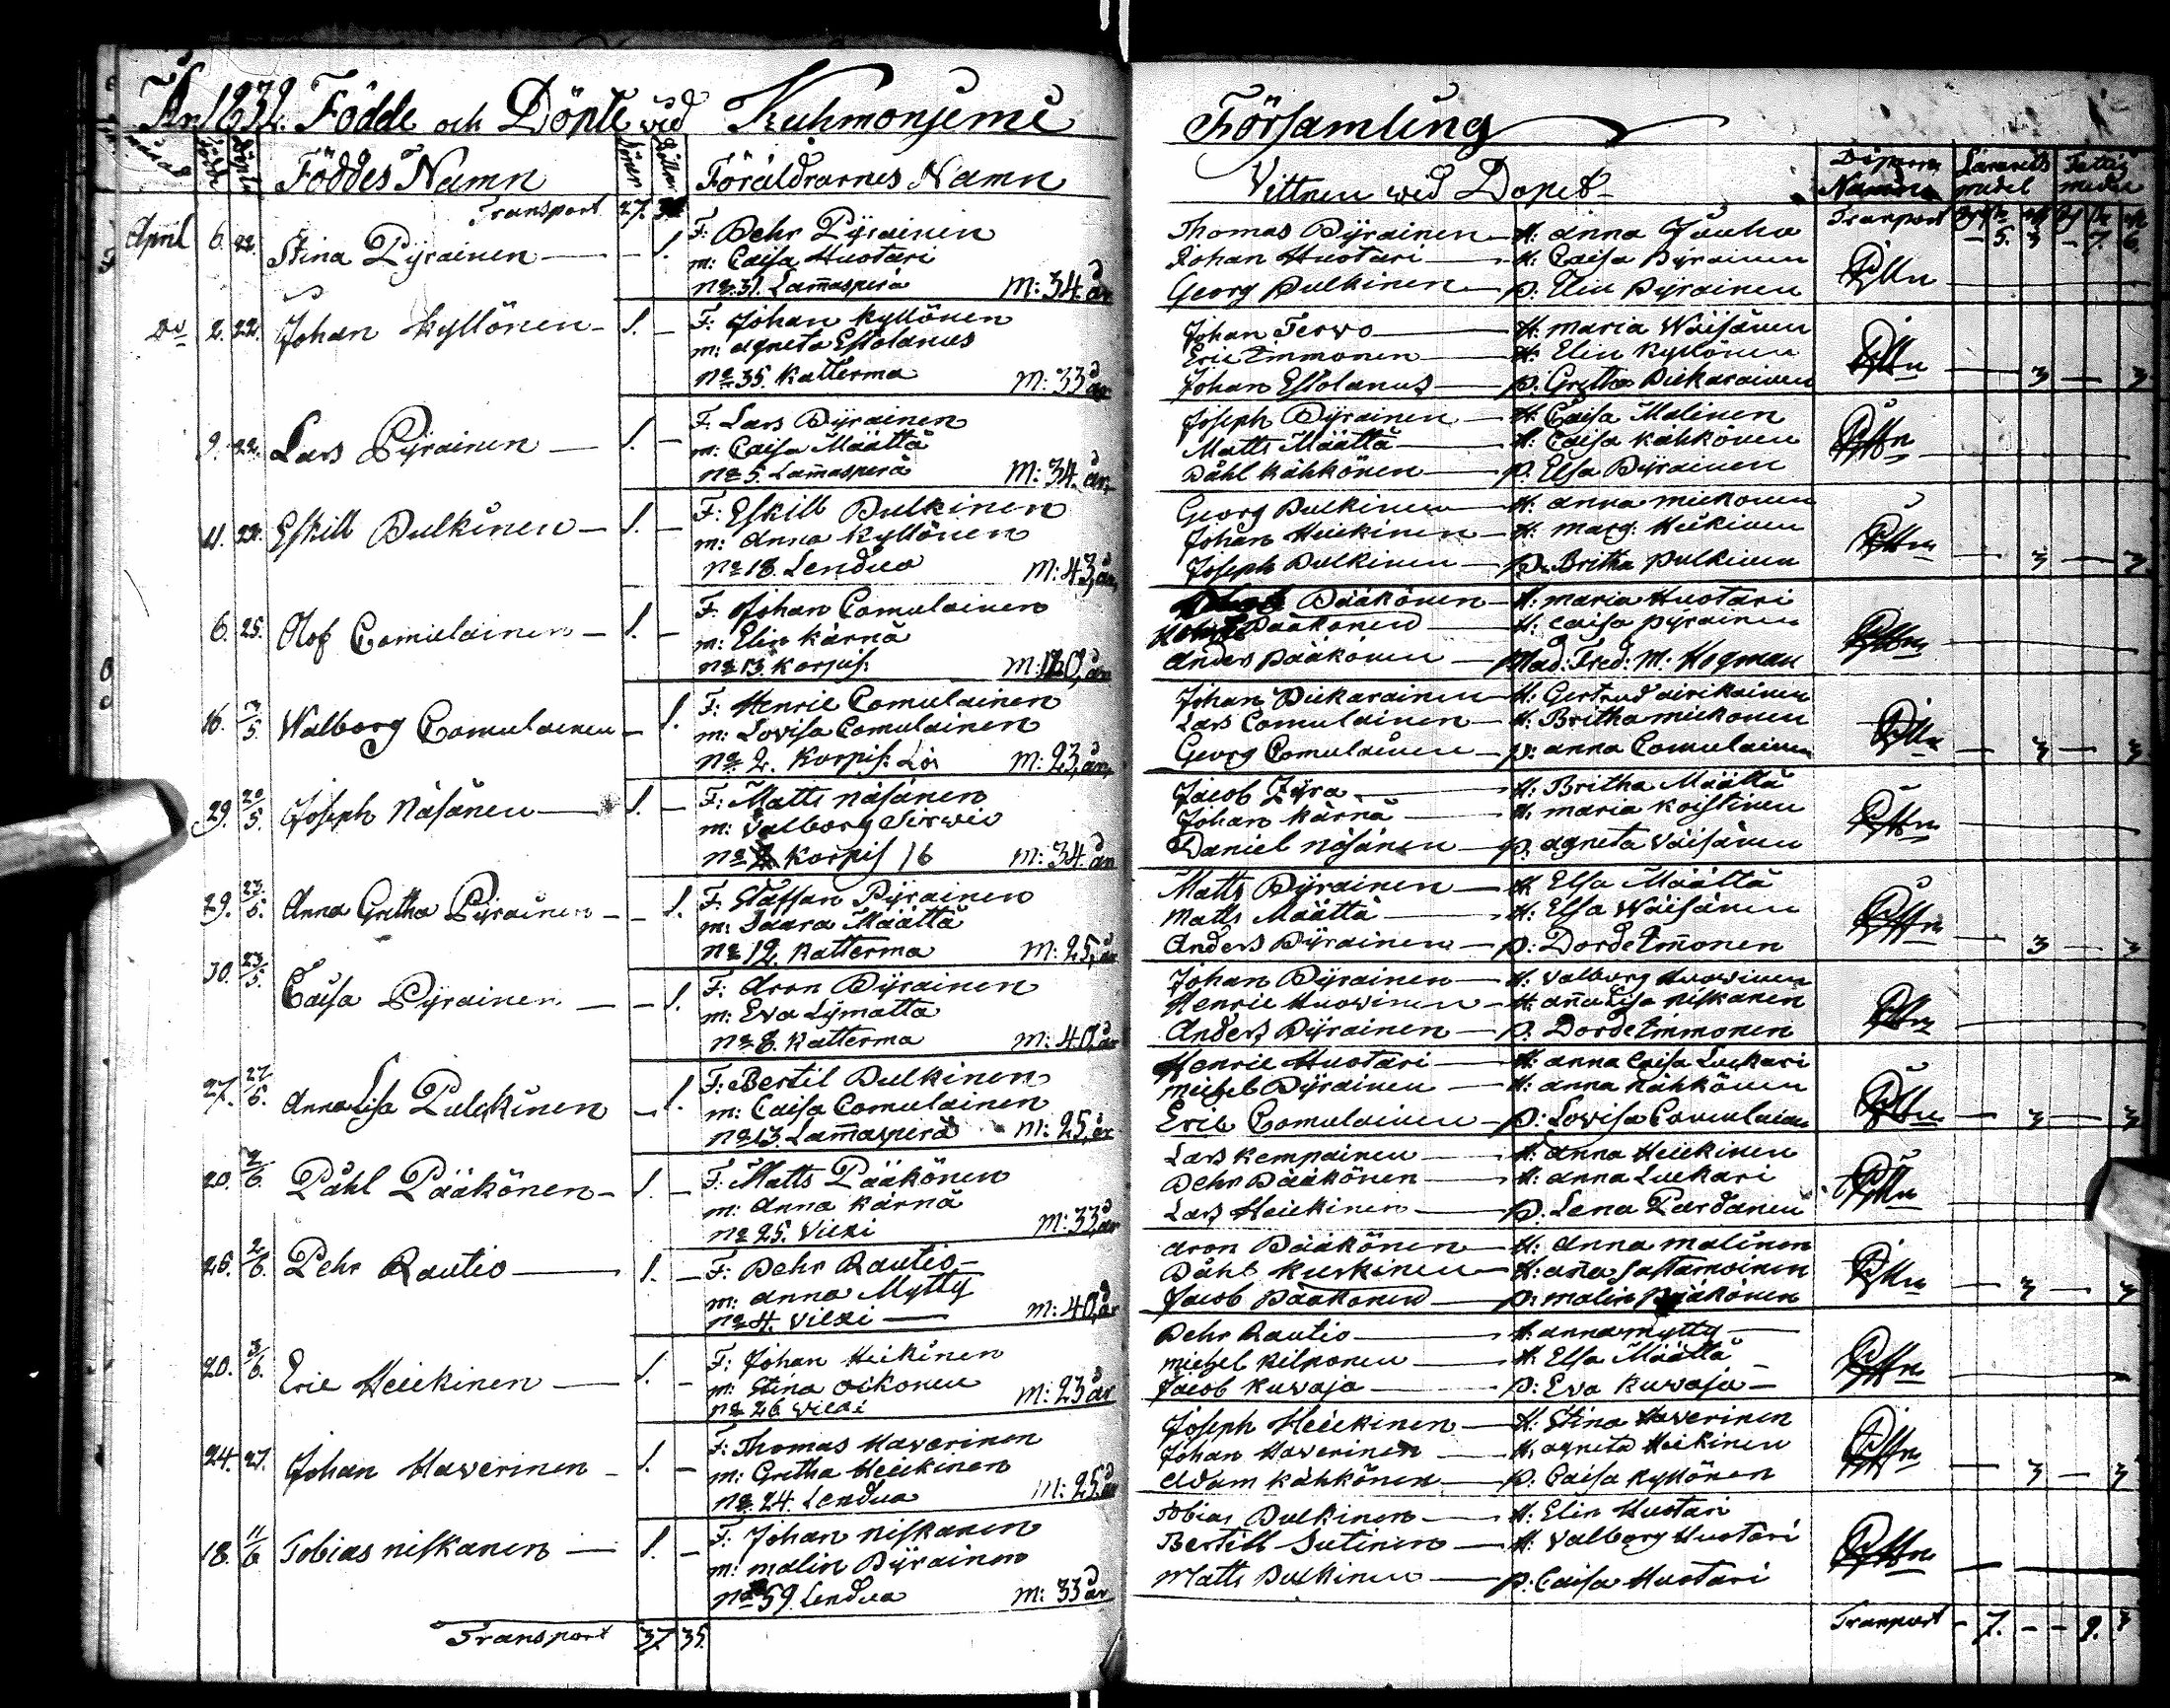 År 1832. Födde och Döpte vid Kuhmonjemi Församling
månad Födde Döpte Föddes Namn Söner Döttrar Föräldrarnes Namn Vittnen wid Dopet Döparens Namn
Transport 27. Transport 5. 3 7. 6.
April 6. 22. Stina Pyrainen — — 1. F: Pehr Pyrainen Thomas Pyrainen — H: Anna Juuho
m: Caisa Huotari Johan Huotari — H: Caisa Pyrainen
No 31. Lam̄asperä M: 34. år Georg Pulkinen — p: Elin Pyrainen
Do 2. 22. Johan Kyllönen — 1. — F: Johan Kyllönen Johan Terwo — H: Maria Wäisänen
m: Agneta Estolanus Eric Immonen — H: Elin Kyllönen
No 35. Katterma M: 33 år Johan Estolanus — p: Gretha Piekarainen — 3 — 3
9. 22. Lars Pyrainen — 1. — F: Lars Pyrainen Joseph Pyrainen — H: Caisa Malinen
m: Caisa Määttä Matts Määttä — H: Caisa Kähkönen
No 5. Lam̄asperä M: 34. år Påhl Kähkönen — p. Elsa Pyrainen
11. 22. Eskill Pulkinen — 1. — F: Eskill Pulkinen Georg Pulkinen — H: Anna Mickonen
m: Anna Kyllönen Johan Heickinen — H: Marg: Heikinen
No 18. Lendua M: 43, år Joseph Pulkinen — p. Britha Pulkinen — 3 — 3
6. 25. Olof Comulainen — 1. — F: Johan Comulainen Pääkönen — H: Maria Huotari
m: Elin Kärnä Pääkönen — H: Caisa Pyrainen
No 13. Korpis: år Anders Pääkönen — Mad: Fred: M. Hogman
16. 3/5. Walborg Comulainen — 1. F: Henric Comulainen Johan Piekarainen — H: Gertrud Airikainen
m: Lovisa Comulainen Lars Comulainen — H: Britha Mickonen
No 2. Korpis: M: 23, år Georg Comulainen — p: Anna Comulainen — 3 — 3
29. 20/5. Joseph Näsänen — 1. — F: Matts Näsänen Jacob Zyra — H: Britha Määttä
m: Valborg Sirwiö Johan Kärnä — H. Maria Koistinen
No Korpis 16 M: 34. år Daniel Näsänen — p. Agneta Väisänen
29. 23/5. Anna Gretha Pyrainen — — 1. F: Staffan Pyrainen Matts Pyrainen — H: Elsa Määttä
m: Saara Määttä Matts Määttä — H: Elsa Wäisänen
No 12. Katterma M: 25, år Anders Pyrainen — p: Dorde Im̄onen — 3 — 3
30. 23/5. Caisa Pyrainen — — 1. F: Aron Pyrainen Johan Pyrainen — H: Valborg Huowinen
m: Eva Lymatta Henric Huowinen — H: An̄a Lisa Niskanen
No 8. Katterma M: 40, år Anders Pyrainen — p. Dorde Immonen
27. 27/5. Anna Lisa Pulckinen — 1. F: Bertil Pulkinen Henric Huotari — H: Anna Caisa Luckari
m: Caisa Comulainen Michel Pyrainen — H: Anna Kähkönen
No 13. Lam̄asperä M: 25, år Eric Comulainen — p: Lovisa Comulainen — 3 — 3
20. 2/6. Påhl Pääkönen — 1. — F: Matts Pääkönen Lars Kempainen — H: Anna Heickinen
m: Anna Kärnä Pehr Pääkönen — H: Anna Luckari
No 25. Vieki M: 33, år Lars Heickinen — p: Lena Pardanen
26. 2/6. Pehr Rautio — 1. — F: Pehr Rautio — Aron Pääkönen — H: Anna Malinen
m: Anna Mytty Påhl Kuckinen — H: An̄a Sattamoinen
No 4. Vieki — M: 40, år Jacob Pääkönen — p: Malin Pääkönen — 3 — 3
20. 3/6. Eric Heickinen — 1. — F: Johan Heikinen Pehr Rautio — H: Anna Mytty —
m: Stina Oikonen Michel Kilponen — H. Elsa Määttä
No 26 Vieki M: 23 år Jacob Kuwaja — p: Eva Kuwaja —
24. 27. Johan Haverinen — 1. — F: Thomas Haverinen Joseph Heickinen — H: Stina Haverinen
m: Gretha Heickinen Johan Haverinen — H. Agneta Heikinen
No 24. Lendua M: 25. år Adam Kähkönen — p. Caisa Kyllönen — 3 — 3
18. 11/6 Tobias Niskanen — 1. — F: Johan Niskanen Tobias Pulkinen — H: Elin Huotari
m: Malin Pyrainen Bertill Sutinen — H: Valborg Huotari
No 59. Lendua M: 33 år Matts Pulkinen — p. Caisa Huotari
Transport 37. 35. Transport — 7. — — 9. 3